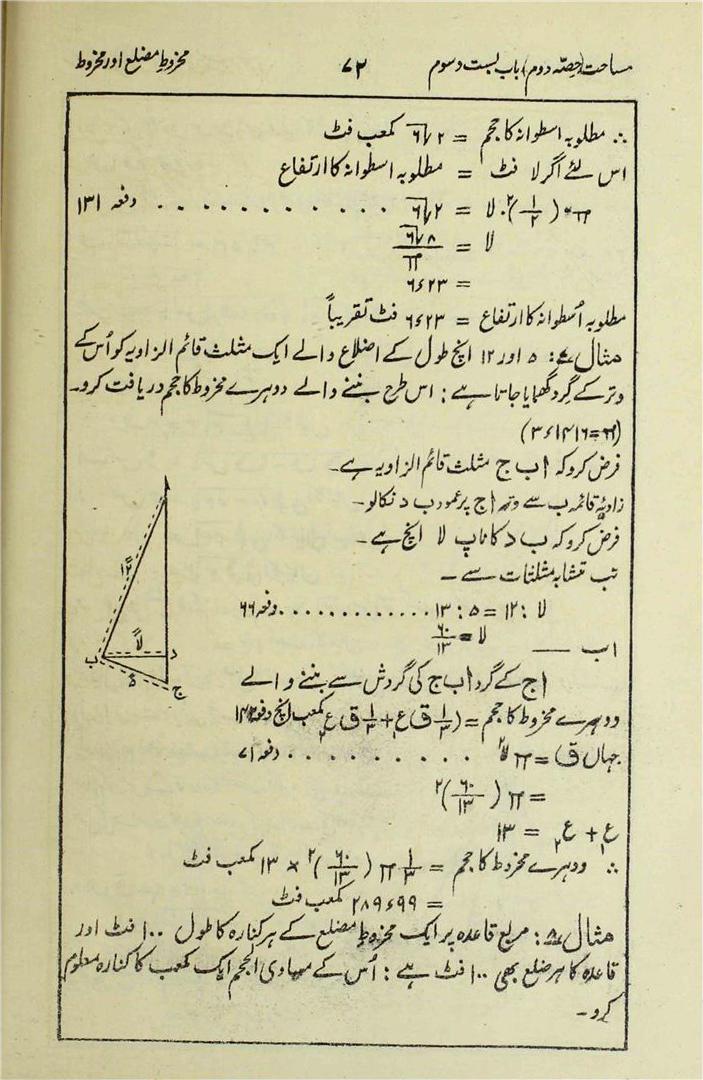 مساحت (حصّہ دوم) باب بست و سوم ۷۲ مخروطِ مضلع اور مخروط
∴ مطلوبہ اسطوانہ کا حجم = ۲√۶ کمعب فٹ
اس لئے اگر لا فٹ = مطلوبہ اسطوانہ کا ارتفاع
π · (۱/۲)² · لا = ۲√۶ . . . . . . . . . . . . دفعہ ۱۳۱
لا = ۸√۶ / π
= ۶٫۲۳
مطلوبہ اُسطوانہ کا ارتفاع = ۶٫۲۳ فٹ تقریباً
مثال ۷: ۵ اور ۱۲ انچ طول کے اضلاع والے ایک مثلث قائم الزاویہ کو اُس کے
وتر کے گرد گھمایا جاتا ہے: اس طرح بننے والے دوہرے مخروط کا حجم دریافت کرو۔
(π = ۳٫۱۴۱۶)
فرض کرو کہ ا ب ج مثلث قائم الزاویہ ہے۔
زاویۂ قائمہ ب سے وتر ا ج پر عمود ب د نکالو۔
فرض کرو کہ ب د کا ناپ لا انچ ہے۔
تب متشابہ مثلثات سے ۔
لا : ۱۲ = ۵ : ۱۳ . . . . . . . . . . . . دفعہ ۶۶
اب — لا = ۶۰/۱۳
ا ج کے گرد ا ب ج کی گردش سے بننے والے
دوہرے مخروط کا حجم = (۱/۳ ق ع₁ + ۱/۳ ق ع₂) کمعب انچ دفعہ
جہاں ق = π لا² . . . . . . . . . دفعہ ۷۱
= π (۶۰/۱۳)²
ع₁ + ع₂ = ۱۳
∴ دوہرے مخروط کا حجم = ۱/۳ π (۶۰/۱۳)² × ۱۳ کمعب فٹ
= ۲۸۹٫۹۹ کمعب فٹ
مثال ۸: مربع قاعدہ پر ایک مخروطِ مضلع کے ہر کنارہ کا طول ۱۰۰ فٹ اور
قاعدہ کا ہر ضلع بھی ۱۰۰ فٹ ہے: اُس کے مساوی الحجم ایک کمعب کا کنارہ معلوم
کرو۔
ا
۱۲"
لا"
ب
د
۵"
ج